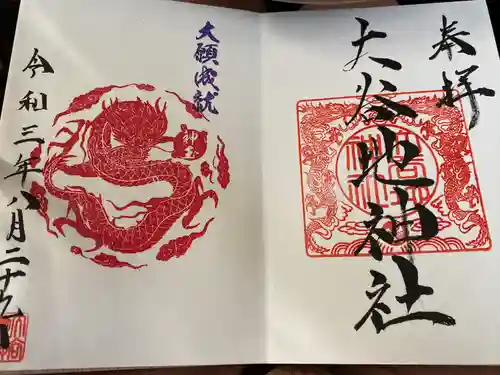 奉拝
大谷地神社
大願成就
神玉
令和三年八月二十九日